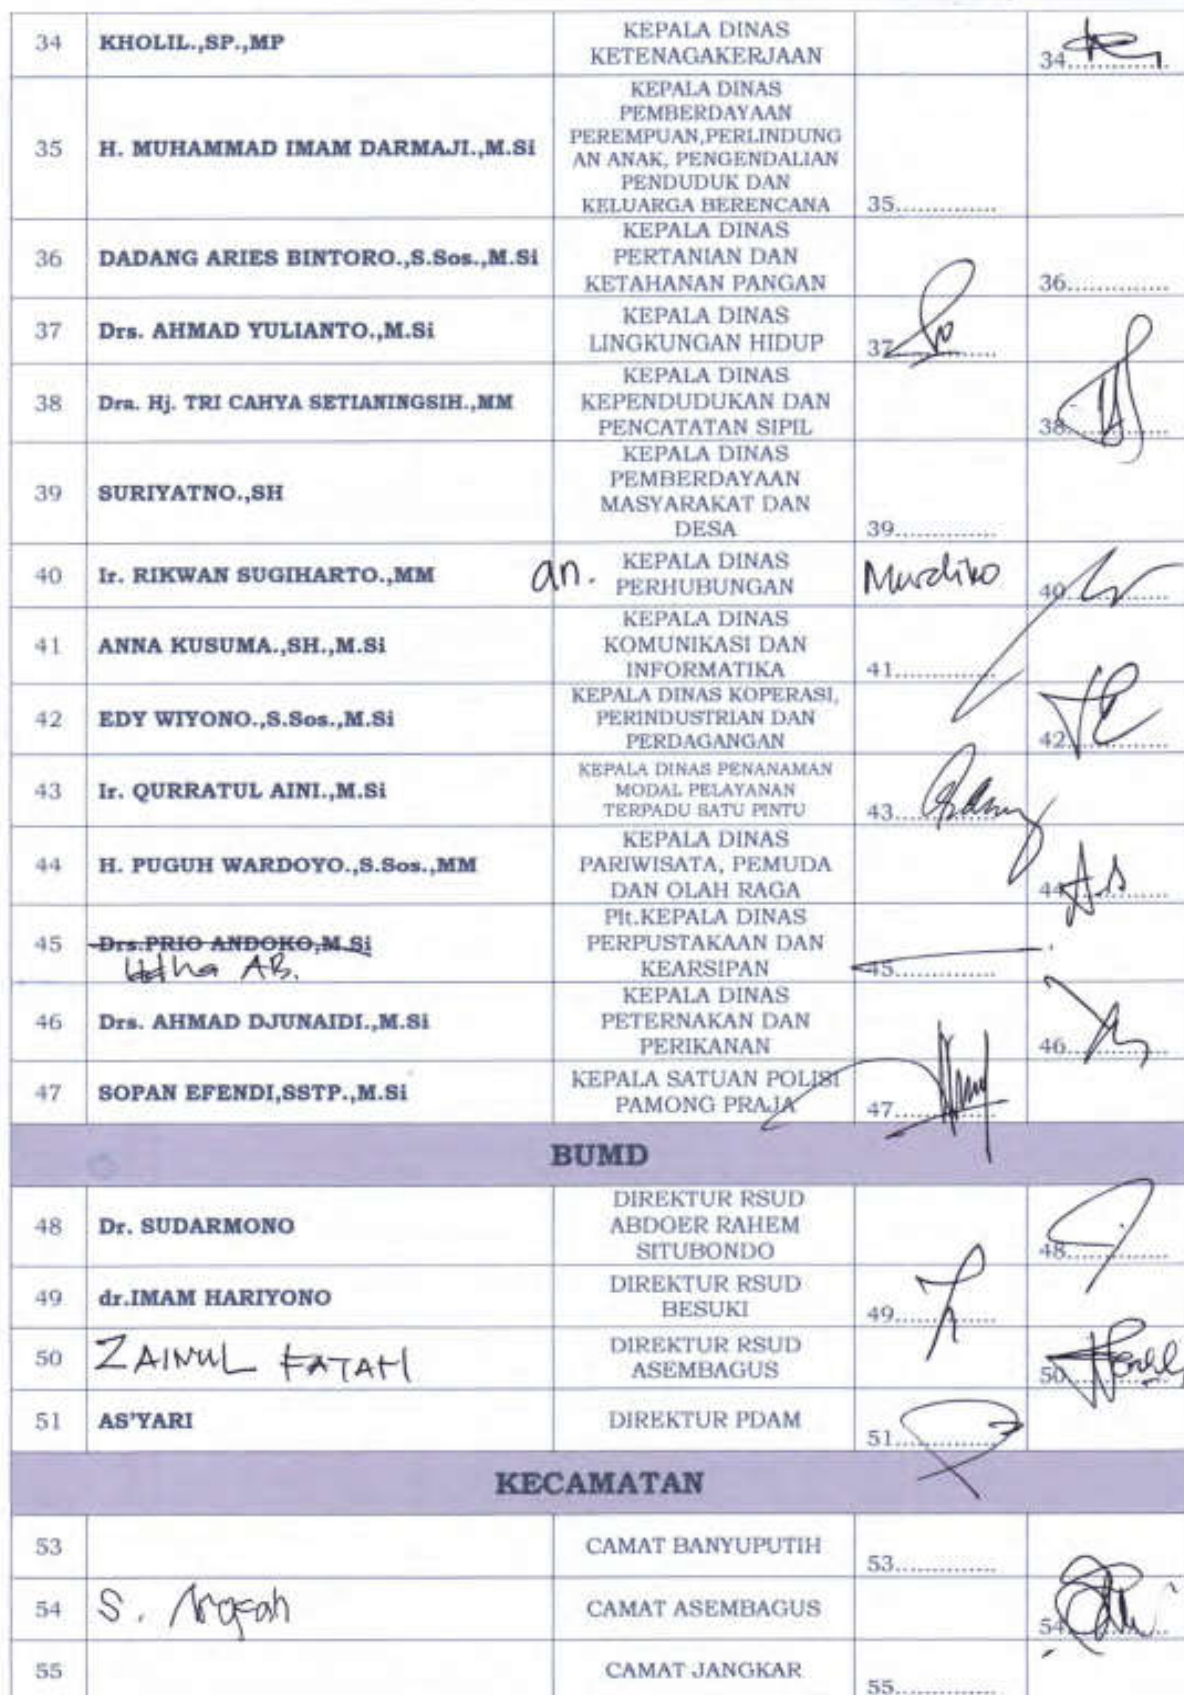 34 KHOLIL.,SP.,MP KEPALA DINAS
KETENAGAKERJAAN 34..............
35 H. MUHAMMAD IMAM DARMAJI.,M.Si KEPALA DINAS
PEMBERDAYAAN
PEREMPUAN,PERLINDUNG
AN ANAK, PENGENDALIAN
PENDUDUK DAN
KELUARGA BERENCANA 35..............
36 DADANG ARIES BINTORO.,S.Sos.,M.Si KEPALA DINAS
PERTANIAN DAN
KETAHANAN PANGAN 36..............
37 Drs. AHMAD YULIANTO.,M.Si KEPALA DINAS
LINGKUNGAN HIDUP 37..............
38 Dra. Hj. TRI CAHYA SETIANINGSIH.,MM KEPALA DINAS
KEPENDUDUKAN DAN
PENCATATAN SIPIL 38..............
39 SURIYATNO.,SH KEPALA DINAS
PEMBERDAYAAN
MASYARAKAT DAN
DESA 39..............
40 Ir. RIKWAN SUGIHARTO.,MM an. KEPALA DINAS
PERHUBUNGAN Murdiko 40..............
41 ANNA KUSUMA.,SH.,M.Si KEPALA DINAS
KOMUNIKASI DAN
INFORMATIKA 41..............
42 EDY WIYONO.,S.Sos.,M.Si KEPALA DINAS KOPERASI,
PERINDUSTRIAN DAN
PERDAGANGAN 42..............
43 Ir. QURRATUL AINI.,M.Si KEPALA DINAS PENANAMAN
MODAL PELAYANAN
TERPADU SATU PINTU 43..............
44 H. PUGUH WARDOYO.,S.Sos.,MM KEPALA DINAS
PARIWISATA, PEMUDA
DAN OLAH RAGA 44..............
45 Drs.PRIO ANDOKO,M.Si Plt.KEPALA DINAS
PERPUSTAKAAN DAN
AB. KEARSIPAN 45..............
46 Drs. AHMAD DJUNAIDI.,M.Si KEPALA DINAS
PETERNAKAN DAN
PERIKANAN 46..............
47 SOPAN EFENDI,SSTP.,M.Si KEPALA SATUAN POLISI
PAMONG PRAJA 47..............
BUMD
48 Dr. SUDARMONO DIREKTUR RSUD
ABDOER RAHEM
SITUBONDO 48..............
49 dr.IMAM HARIYONO DIREKTUR RSUD
BESUKI 49..............
50 ZAINUL FATAH DIREKTUR RSUD
ASEMBAGUS 50..............
51 AS'YARI DIREKTUR PDAM 51..............
KECAMATAN
53 CAMAT BANYUPUTIH 53..............
54 S. CAMAT ASEMBAGUS 54..............
55 CAMAT JANGKAR 55..............